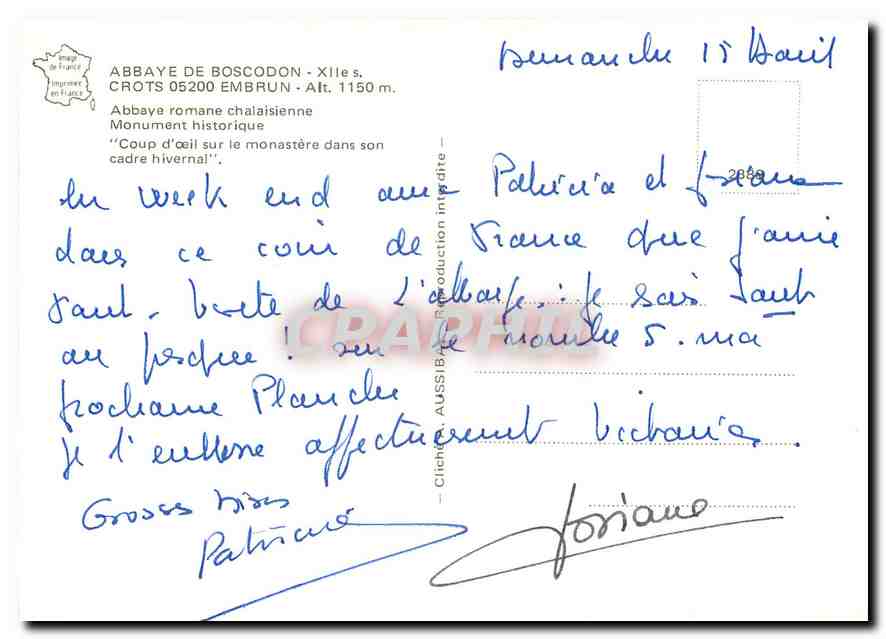 Dimanche 15 Avril
Image
de France
Imprimée
en France
ABBAYE DE BOSCODON - XIIe s.
CROTS 05200 EMBRUN - Alt. 1150 m.
Abbaye romane chalaisienne
Monument historique
"Coup d'œil sur le monastère dans son
cadre hivernal".
2889
– Clichés A. AUSSIBAL - Reproduction interdite –
un week end avec Patricia et Josiane
dans ce coin de France que j'aime
tant. de : je suis
au ! sur le nombre 5. ma
prochaine Planche
je t'embrasse affectueusement
Grosses bises
Patricia
Josiane
CPAPHIL